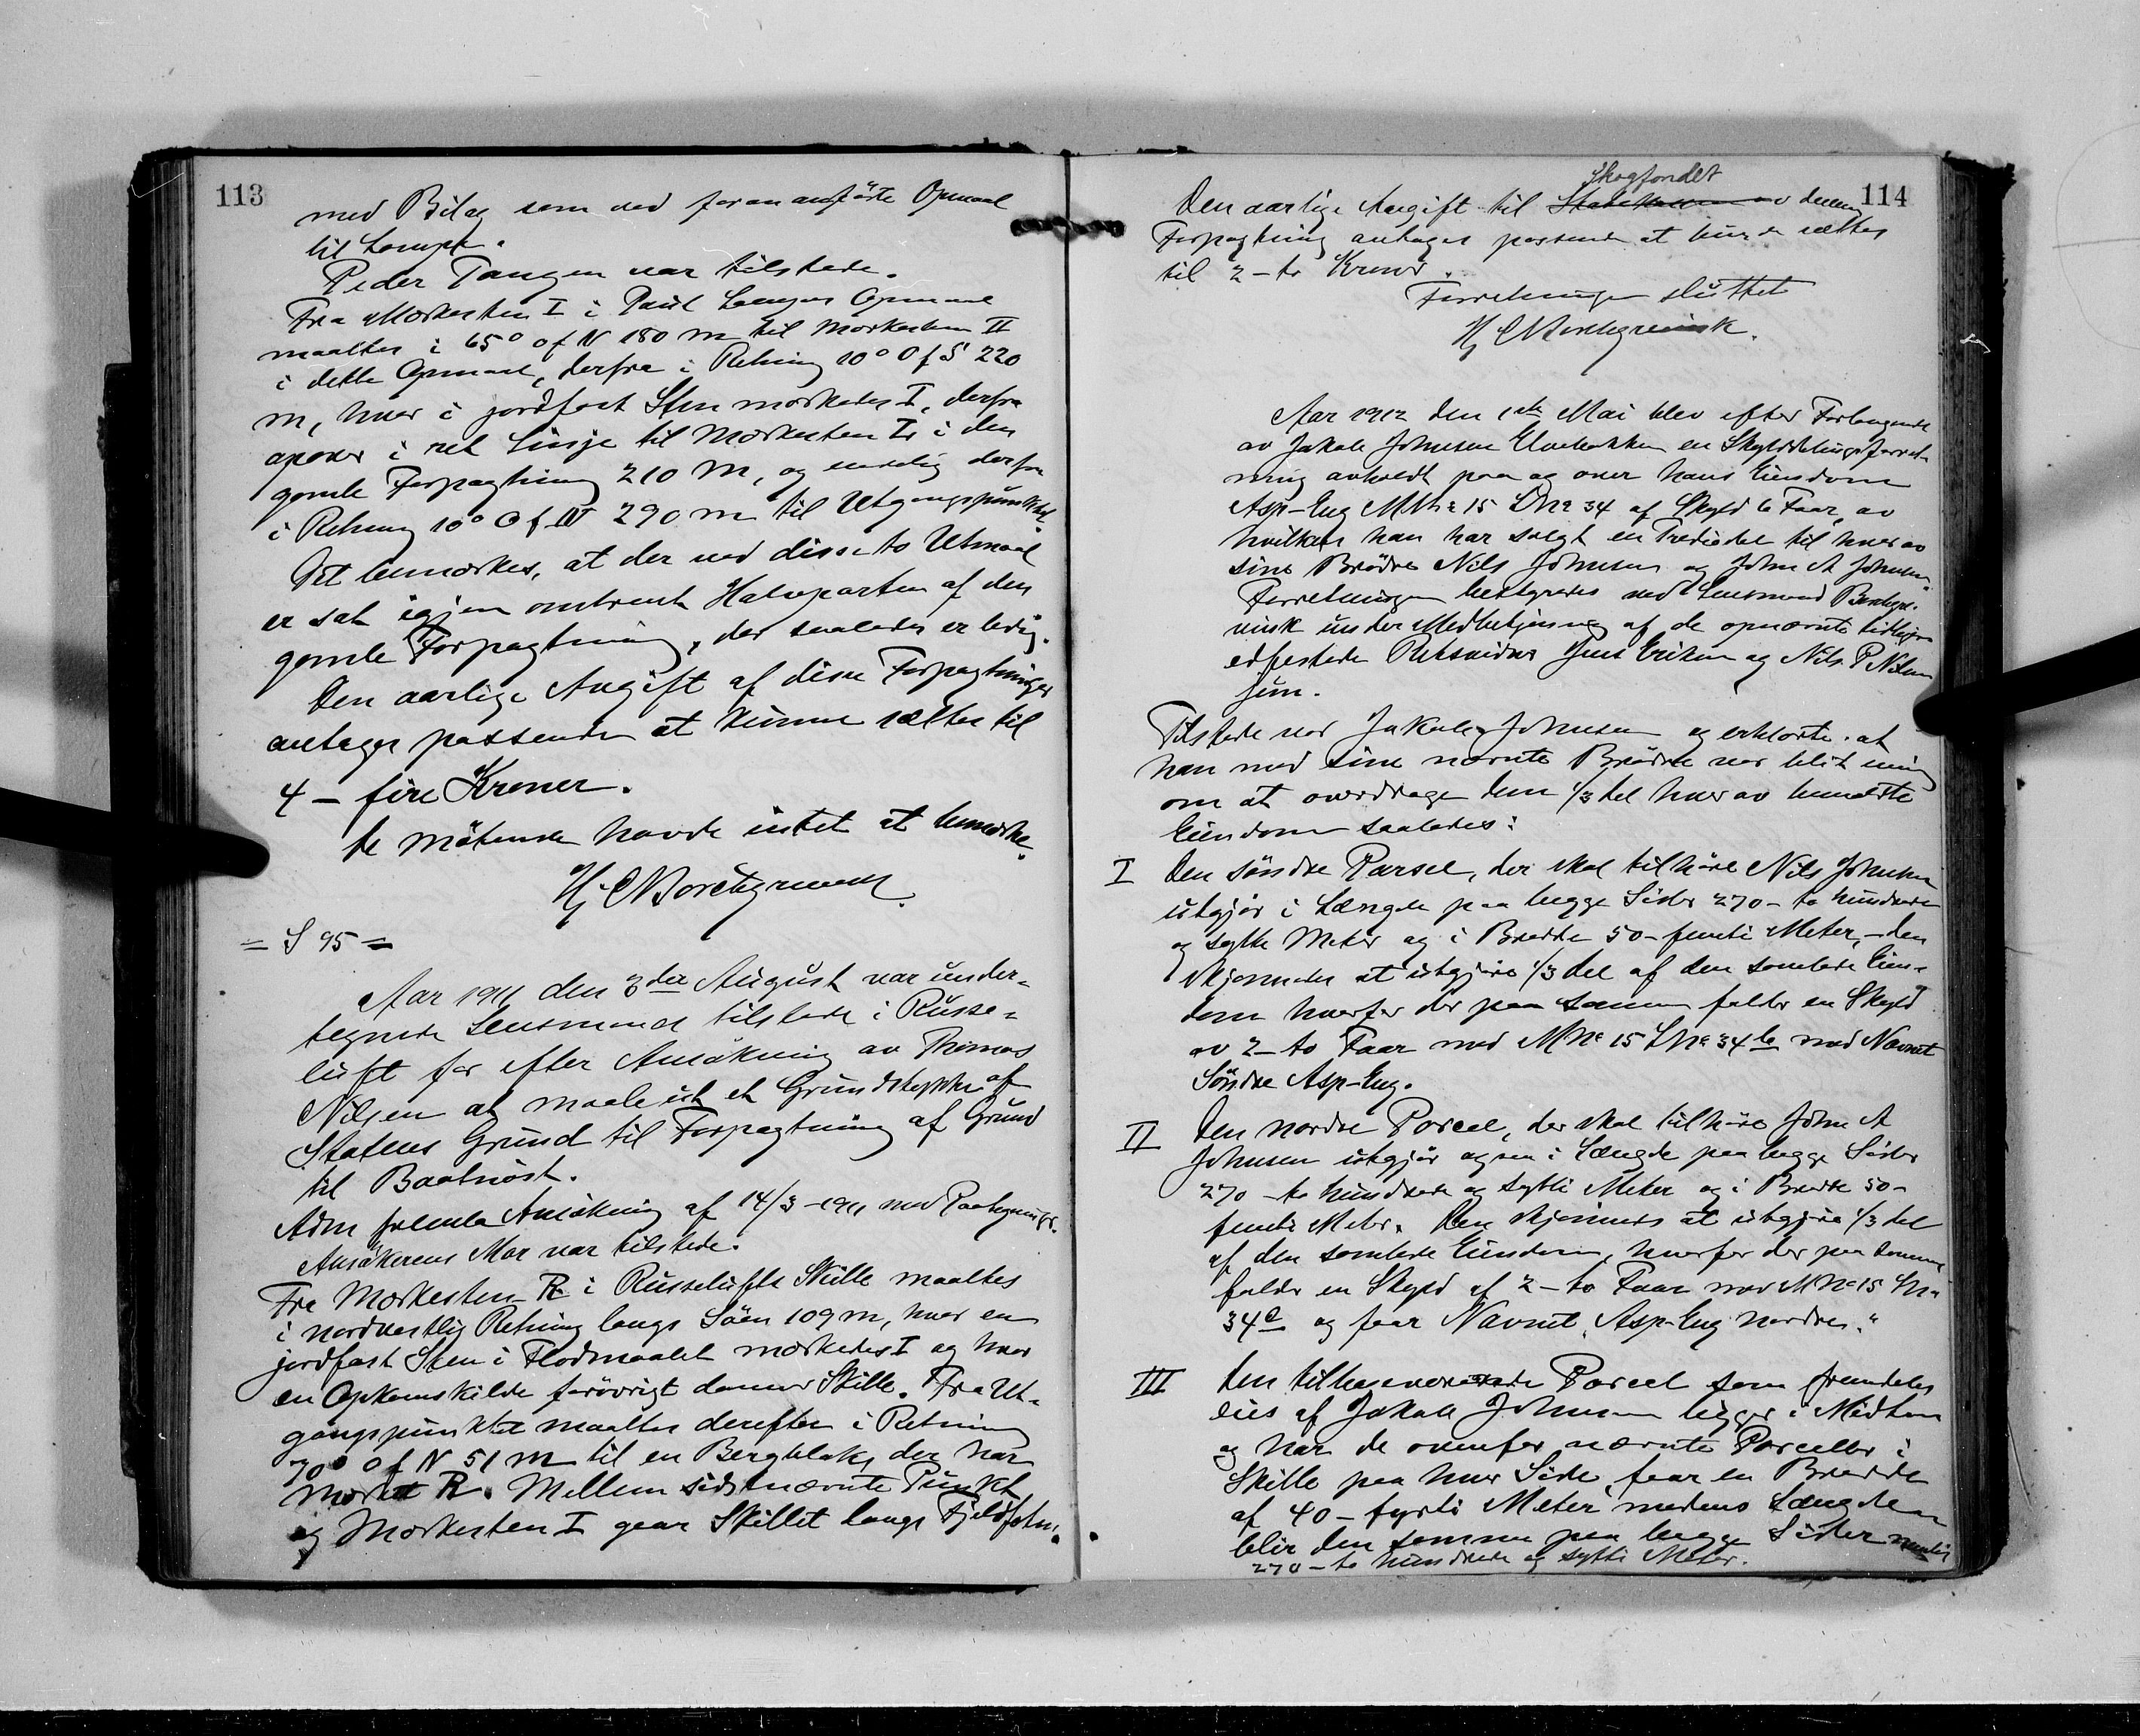 113
med Bilag som ved foran anførte Opmaal
til Lampe.
Peder Tangen var tilstede.
Fra Merkesten I i Paul Langes Opmaal
maaltes i 65° Ø f N 180 m til Merkesten II
i dette Opmaal, derfra i Retning 10° Ø f S 220
m, hvor i jordfast Sten merkedes I, derfra
i ret Linje til Merkesten I i den
gamle Forpagtning 210 m, og endelig derfra
i Retning 10° Ø f N 290 m til Utgangspunktet.
Det bemerkes, at der ved disse to Utmaal
er sat igjen omtrent Halvparten af den
gamle Forpagtning, der saaledes er ledig.
Den aarlige Avgift af disse Forpagtninger
antages passende at kunne sættes til
4 - fire Kroner.
De møtende havde intet at bemerke.
Hj C Borchgrevink
= S 95 =
Aar 1911 den 3die August var under-
tegnede Lensmand tilstede i Russe-
luft for efter Ansøkning av Thomas
Nilsen at maale ut et Grundstykke af
Statens Grund til Forpagtning af Grund
til Baatnøst.
Adm fremla Ansøkning af 14/3 - 1911 med Paategninger.
Ansøkerens Mor var tilstede.
Fra Merkesten R i Russelufts Skille maaltes
i nordvestlig Retning langs Søen 109 m, hvor en
jordfast Sten i Flodmaalet merkedes I og hvor
en Opkomskilde forøvrigt danner Skille. Fra Ut-
gangspunktet maaltes derefter i Retning
70° Ø f N 51 m til en Bergblok, der har
Merket R. Mellem sidstnævnte Punkt
og Merkesten I gaar Skillet langs Fjeldfoten.
114
Skogfondet
Den aarlige Avgift til Statskassen av denne
Forpagtning antages passende at kunde sættes
til 2 - to Kroner.
Forretningen sluttet
Hj C Borchgrevink.
Aar 1912 den 1ste Mai blev efter Forlangende
av Jakob Johnsen Elvebakken en Skylddelingsforret-
ning avholdt paa og over hans Eiendom
Asp-Eng MNr 15 LNr 34 af Skyld 6 Faar, av
hvilken han har solgt en Trediedel til hver av
sine Brødre Nils Johnsen og John A Johnsen.
Forretningen bestyredes ved Lensmand Borchgre-
vink under Medbetjening af de opnævnte tidligere
edfestede Retsvidner Jens Eriksen og Nils P Nilsen
jun.
Tilstede var Jakob Johnsen og erklærte at
han med sine nævnte Brødre var blit enig
om at overdrage dem 1/3 del hver av bemeldte
Eiendom saaledes:
I Den søndre Parsel, der skal tilhøre Nils Johnsen
utgjør i Længde paa begge Sider 270 - to hundrede
og sytti Meter og i Bredde 50 - femti Meter, - den
skjønnedes at utgjøre 1/3 del af den samlede Eien-
dom hvorfor der paa samme falder en Skyld
av 2 - to Faar med MNr 15 LNr 34 b med Navnet
Søndre Asp-Eng.
II Den nordre Parcel, der skal tilhøre John A
Johnsen utgjør ogsaa i Længde paa begge Sider
270 - to hundrede og sytti Meter og i Bredde 50 -
femti Meter. Den skjønnes at utgjøre 1/3 del
af den samlede Eiendom, hvorfor der paa samme
falder en Skyld af 2 - to Faar med MNr 15 LNr
34 c og faar Navnet "Asp-Eng nordre."
III Den tilbageværende Parcel som fremdeles
eies af Jakob Johnsen ligger i Midten
og har de ovenfor nævnte Parceller i
Skille paa hver Side, faar en Bredde
af 40 - fyrti Meter medens Længden
blir den samme paa begge Sider nemlig
270 - to hundrede og sytti Meter.